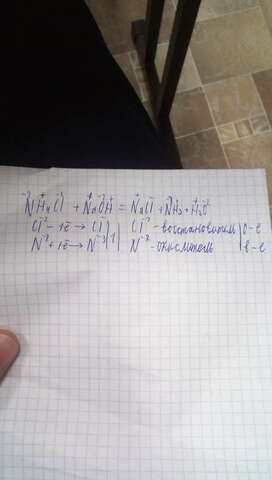 NH₄Cl + NaOH = NaCl + NH₃ + H₂O
Cl⁻² - 1ē → Cl⁻ | Cl⁻² - восстановитель | о-е
N⁻² + 1ē → N⁻³ | 1 | N⁻² - окислитель | в-е